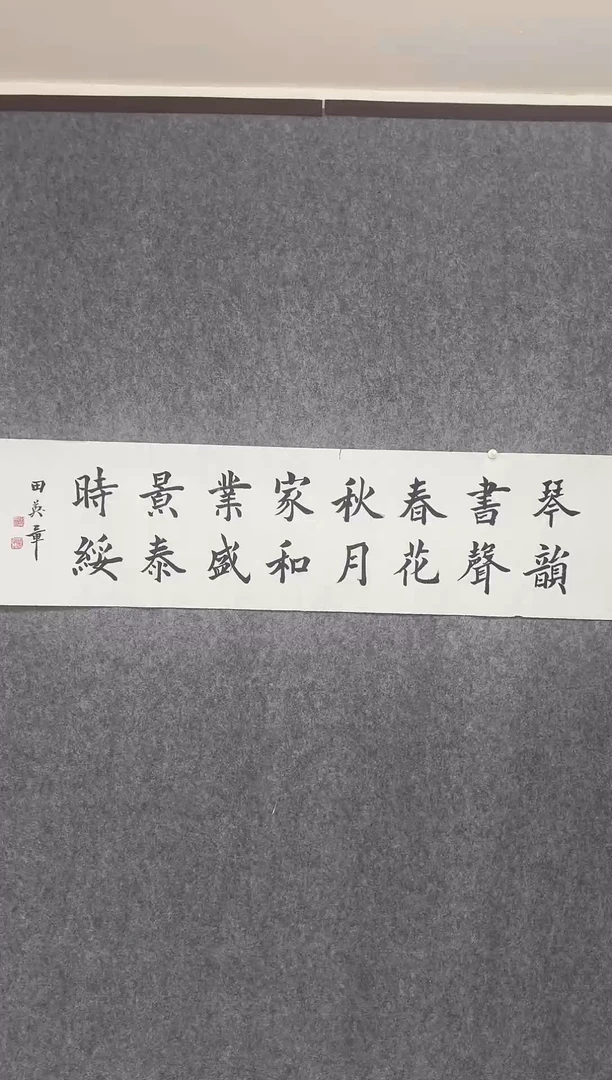 琴韻
書聲
春花
秋月
家和
業盛
景泰
時綏
田英章